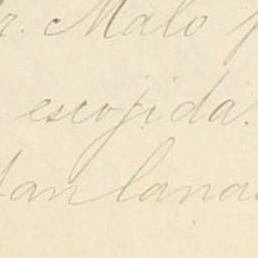 r. Malo
escojida.
tan lana